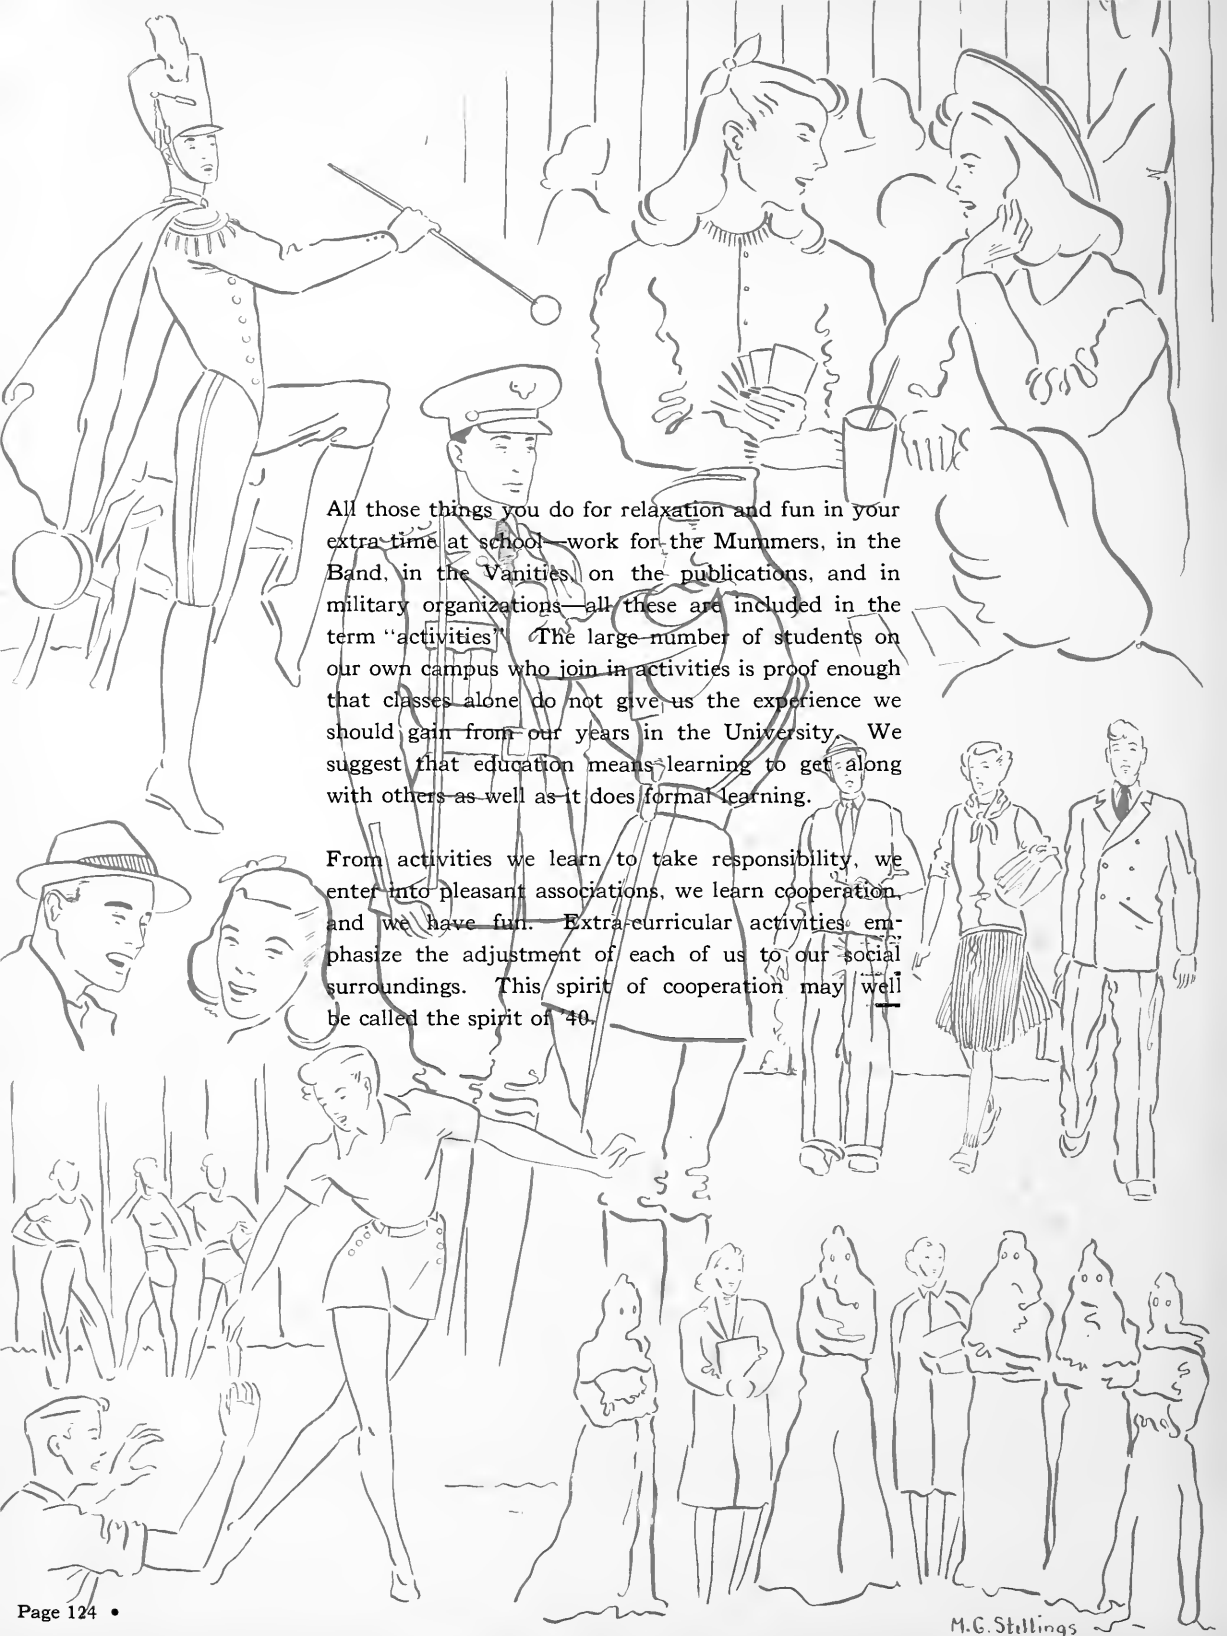 All those things you do for relaxation and fun in your
extra time at school—work for the Mummers, in the
Band, in the Vanities, on the publications, and in
military organizations—all these are included in the
term “activities”. The large number of students on
our own campus who join in activities is proof enough
that classes alone do not give us the experience we
should gain from our years in the University. We
suggest that education means learning to get along
with others as well as it does formal learning.
From activities we learn to take responsibility, we
enter into pleasant associations, we learn cooperation,
and we have fun. Extra-curricular activities em-
phasize the adjustment of each of us to our social
surroundings. This spirit of cooperation may well
be called the spirit of ’40.
Page 124 •
M.G. Stillings